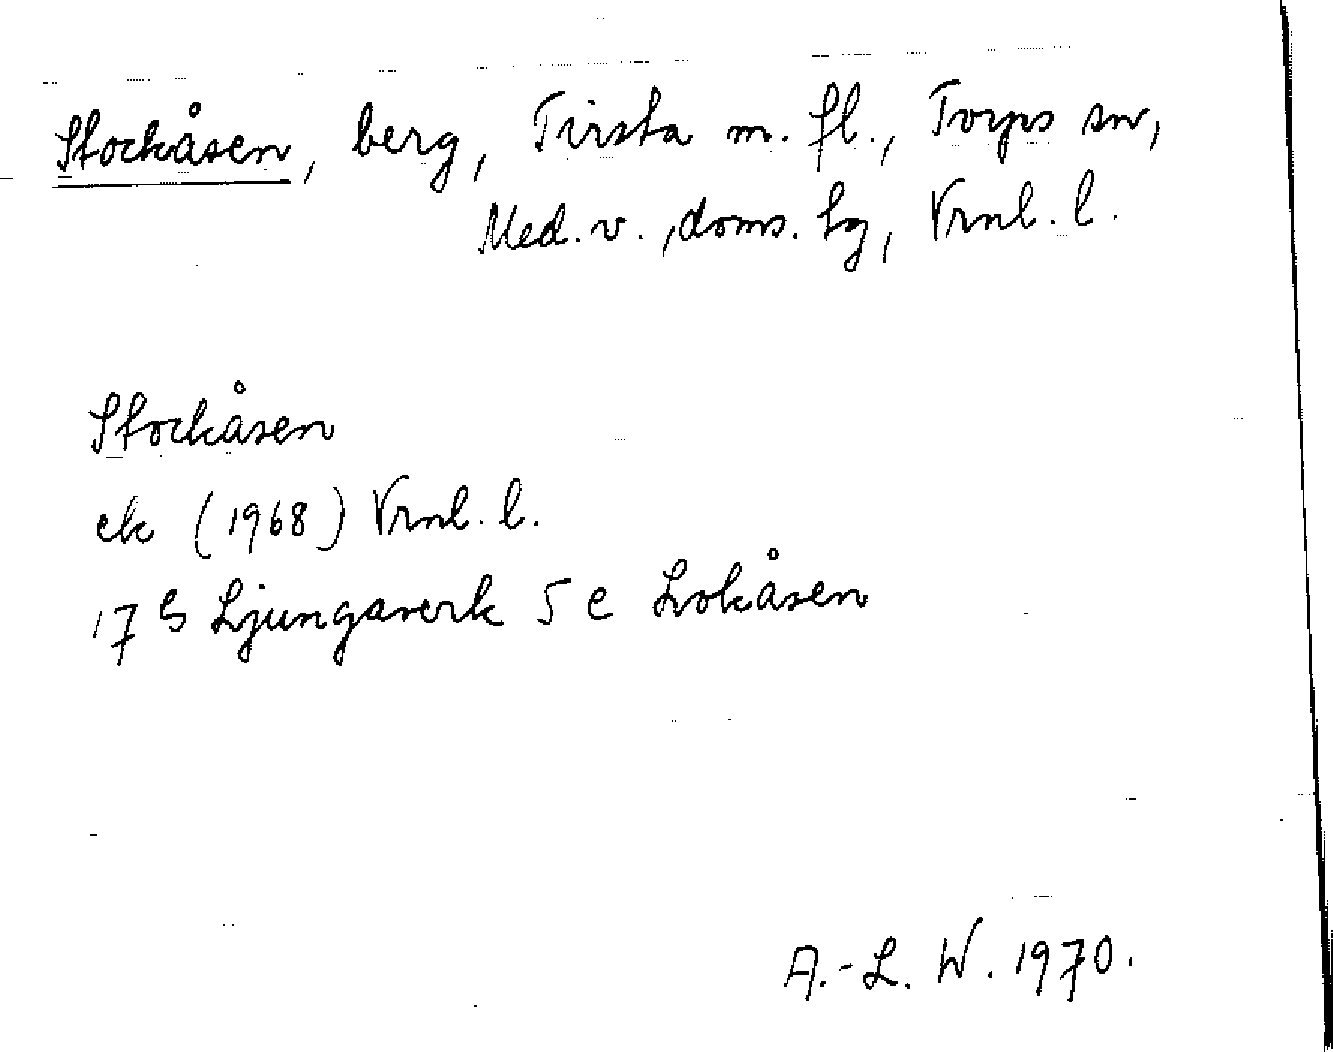 Stockåsen, berg, Tirsta m. fl., Torps sn,
Med. v., doms. hg, Vrnl. l.
Stockåsen
ek (1968) Vrnl. l.
17 G Ljungaverk 5 e Lokåsen
A.-L. W. 1970.